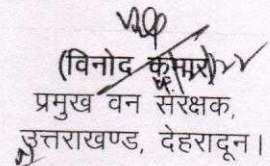 (विनोद कुमार)
प्रमुख वन संरक्षक,
उत्तराखण्ड, देहरादून।